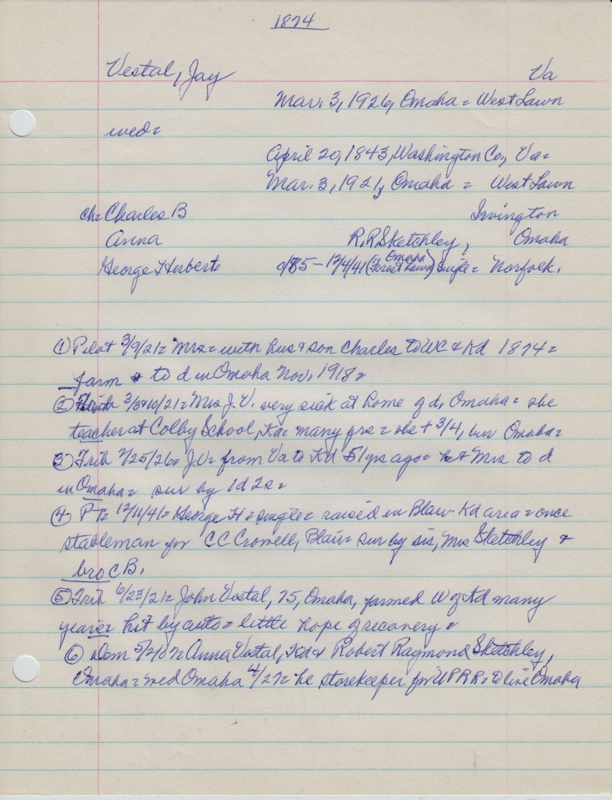 1874
Vestal, Jay Va
Mar. 3, 1926, Omaha = West Lawn
wed=
April 20, 1843, Washington Co, Va=
Mar. 3, 1921, Omaha = West Lawn
ch= Charles B Irvington
Anna R.R Sketchley, Omaha
George Herbert= /85 - 12/4/41 (Omaha Forest Lawn) single = Norfolk.
① Pilot 3/9/21= Mrs= with hus + son Charles to WC + Kd 1874=
farm + to d in Omaha Nov, 1918=
② 3/3+10/21= Mrs J. V. very sick at home of d, Omaha= she
teacher at Colby School, Kd= many yrs= she + 3/4, bur Omaha=
③ Trib 2/25/26= J.V= from Va to Kd 51 yrs ago= + Mrs to d
in Omaha= sur by 1d 2s=
④ PT= 12/11/41= George H= single= raised in Blair-Kd area= once
stableman for CC Crowell, Blair= sur by sis, Mrs Sketchley +
bro CB.
⑤ Trib 6/23/21= John Vestal, 75, Omaha, farmed W of Kd many
years= hit by auto= little hope of recovery=
⑥ Dem 5/2/07= Anna Vestal, Kd + Robert Raymond Sketchley,
Omaha= wed Omaha 4/27= he storekeeper for UPRR= to live Omaha